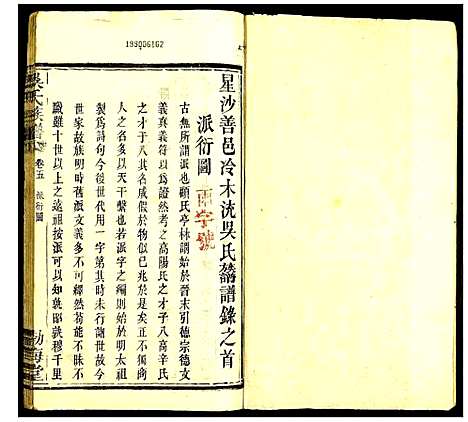 199006162
星沙善邑冷木沇吳氏蕃譜錄之首
派衍圖
南字號
古無所謂派也顧氏亭林謂始於晉末引德宗德文
義真義符以為明徵然考之高陽氏才子八高辛氏
才子八其命名之公已兆於是矣正不獨商
人之名天干繫也若派字之編則始於前明或
製為詩句今後世代用一字第其中不可行遍世有
世家故族明時舊派文義多不可繹然苟能不昧不
職雖十世以上之遠祖按派可以敦敘敦穆千里
吳氏族譜
卷五
派衍圖
渤海堂